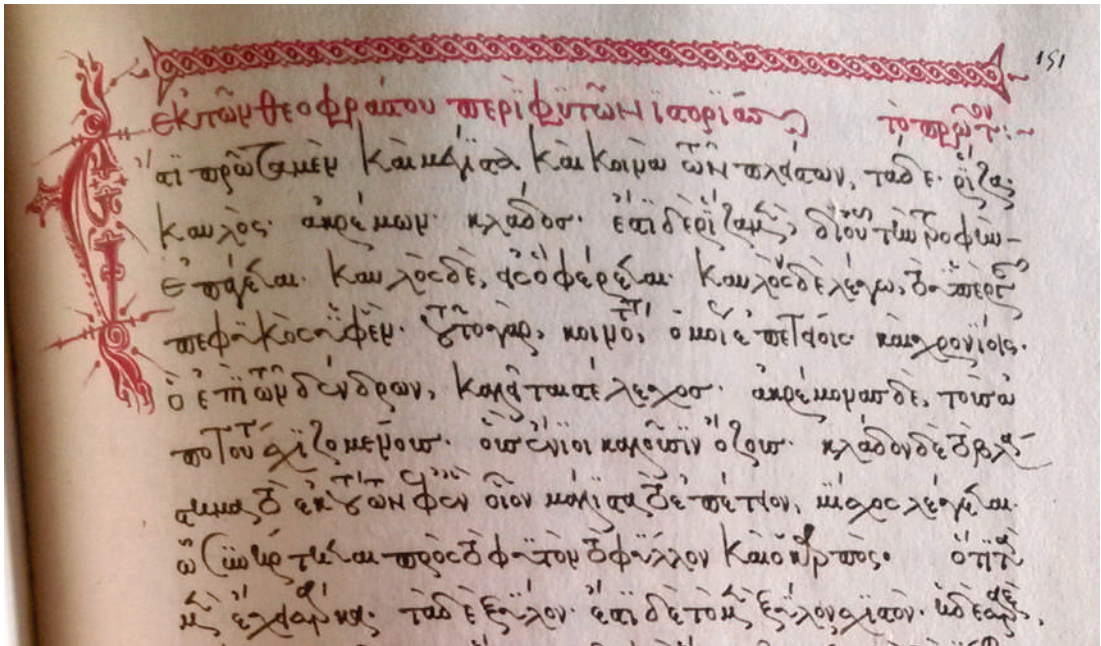 ἐκ τῶν θεοφράστου περὶ φυτῶν ἱστορίας τὸ πρῶτον:~ 151
Ἔστι πρῶτα μὲν καὶ μέγιστα καὶ κοινὰ τῶν πλείστων, τάδε· ῥίζα·
καυλὸς· ἀκρέμων· κλάδος· ἔστι δὲ ῥίζα μὲν, δι' οὗ τὴν τροφὴν
ἐπάγεται· καυλὸς δὲ, εἰς ὃ φέρεται· καυλὸν δὲ λέγω, τὸ ὑπὲρ γῆς
πεφυκὸς ἐφ' ἕν· τοῦτο γὰρ, κοινότατον, ὁμοίως ἐπετείοις καὶ χρονίοις·
ὃ ἐπὶ τῶν δένδρων, καλεῖται στέλεχος· ἀκρέμονας δὲ, τοὺς ἀ
πὸ τούτου σχιζομένους· οὓς ἔνιοι καλοῦσιν ὄζους· κλάδον δὲ τὸ βλά
στημα τὸ ἐκ τούτων ἐφ' ἓν οἷον μάλιστα τὸ ἐπέτειον, μίσχος λέγεται·
ὧ συνήρτηται πρὸς τὸ φυτὸν τὸ φύλλον καὶ ὁ καρπός· ὅτι τὰ
μὲν τὰ δὲ ξύλον· ἔστι δὲ τὸ μὲν ξύλον